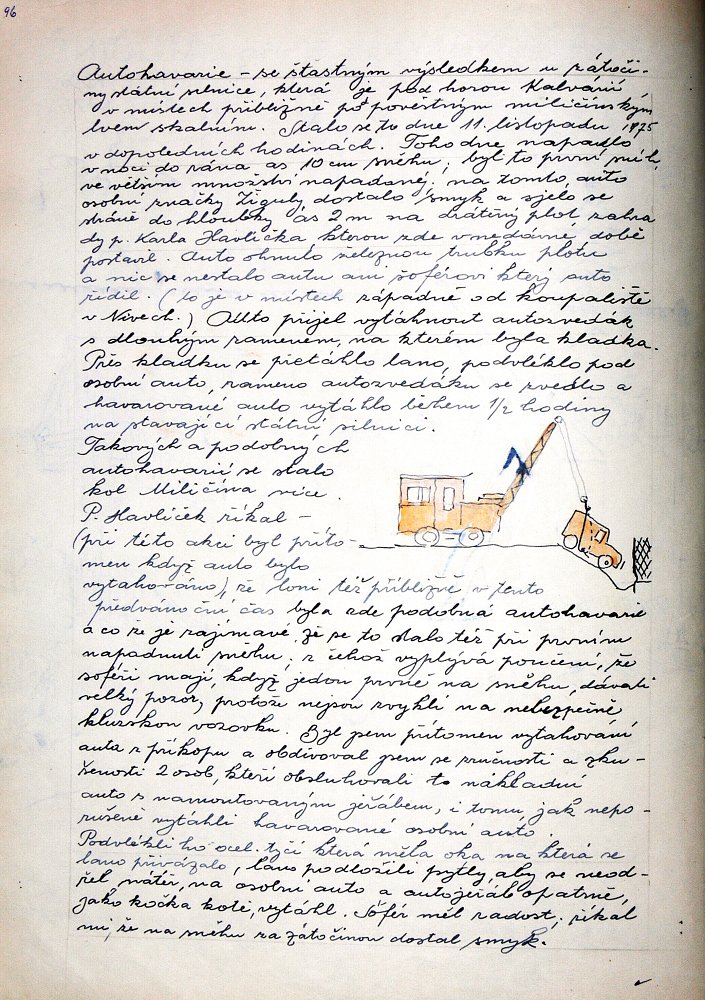 96
Autohavarie - se štastným výsledkem u zátoči-
ny státní silnice, která je pod horou Kalvárií
v místech přibližně pod pověstným miličínským
lvem skalním. Stalo se to dne 11. listopadu 1975
v dopoledních hodinách. Toho dne napadlo
v noci do rána as 10 cm sněhu, byl to první sníh,
ve větším množství napadaný. na tomto, auto
osobní značky Žiguly, dostalo smyk a sjelo se
stráně do hloubky as 2 m na drátěný plot, zahra
dy p. Karla Havlíčka kterou zde v nedávné době
postavil. Auto ohnulo železnou trubku plotu
a nic se nestalo autu ani šoférovi který auto
řídil. (to je v místech západně od koupaliště
v Nivech.) Auto přijel vytáhnout autozvedák
s dlouhým ramenem, na kterém byla kladka.
Přes kladku se přetáhlo lano, podvléklo pod
osobní auto, rameno autozvedáku se zvedlo a
havarované auto vytáhlo během 1/2 hodiny
na stavající státní silnici.
Takových a podobných
autohavarií se stalo
kol Miličína více.
P. Havlíček říkal -
(při této akci byl příto-
men když auto bylo
vytahováno), že loni též přibližně v tento
předvánoční čas byla zde podobná autohavarie
a co že je zajímavé, že se to stalo též při prvním
napadnutí sněhu, z čehož vyplývá poučení, že
soféři mají, když jedou prvně na sněhu, dávati
velký pozor, protože nejsou zvyklí na nebezpečně
kluzskou vozovku. Byl jsem přítomen vytahování
auta z příkopu a obdivoval jsem se zručnosti a zku-
šenosti 2 osob, kteří obsluhovali to nákladní
auto s namontovaným jeřábem, i tomu, jak nepo-
rušeně vytáhli havarované osobní auto.
Podvlékli ho ocel. tyčí která měla oka na která se
lano přivázalo, lano podložili pytly, aby se neod-
řel nátěr, na osobní auto a autojeřáb opatrně,
jako kočka kotě, vytáhl. Šofér měl radost, říkal
mi, že na sněhu za zátočinou dostal smyk.